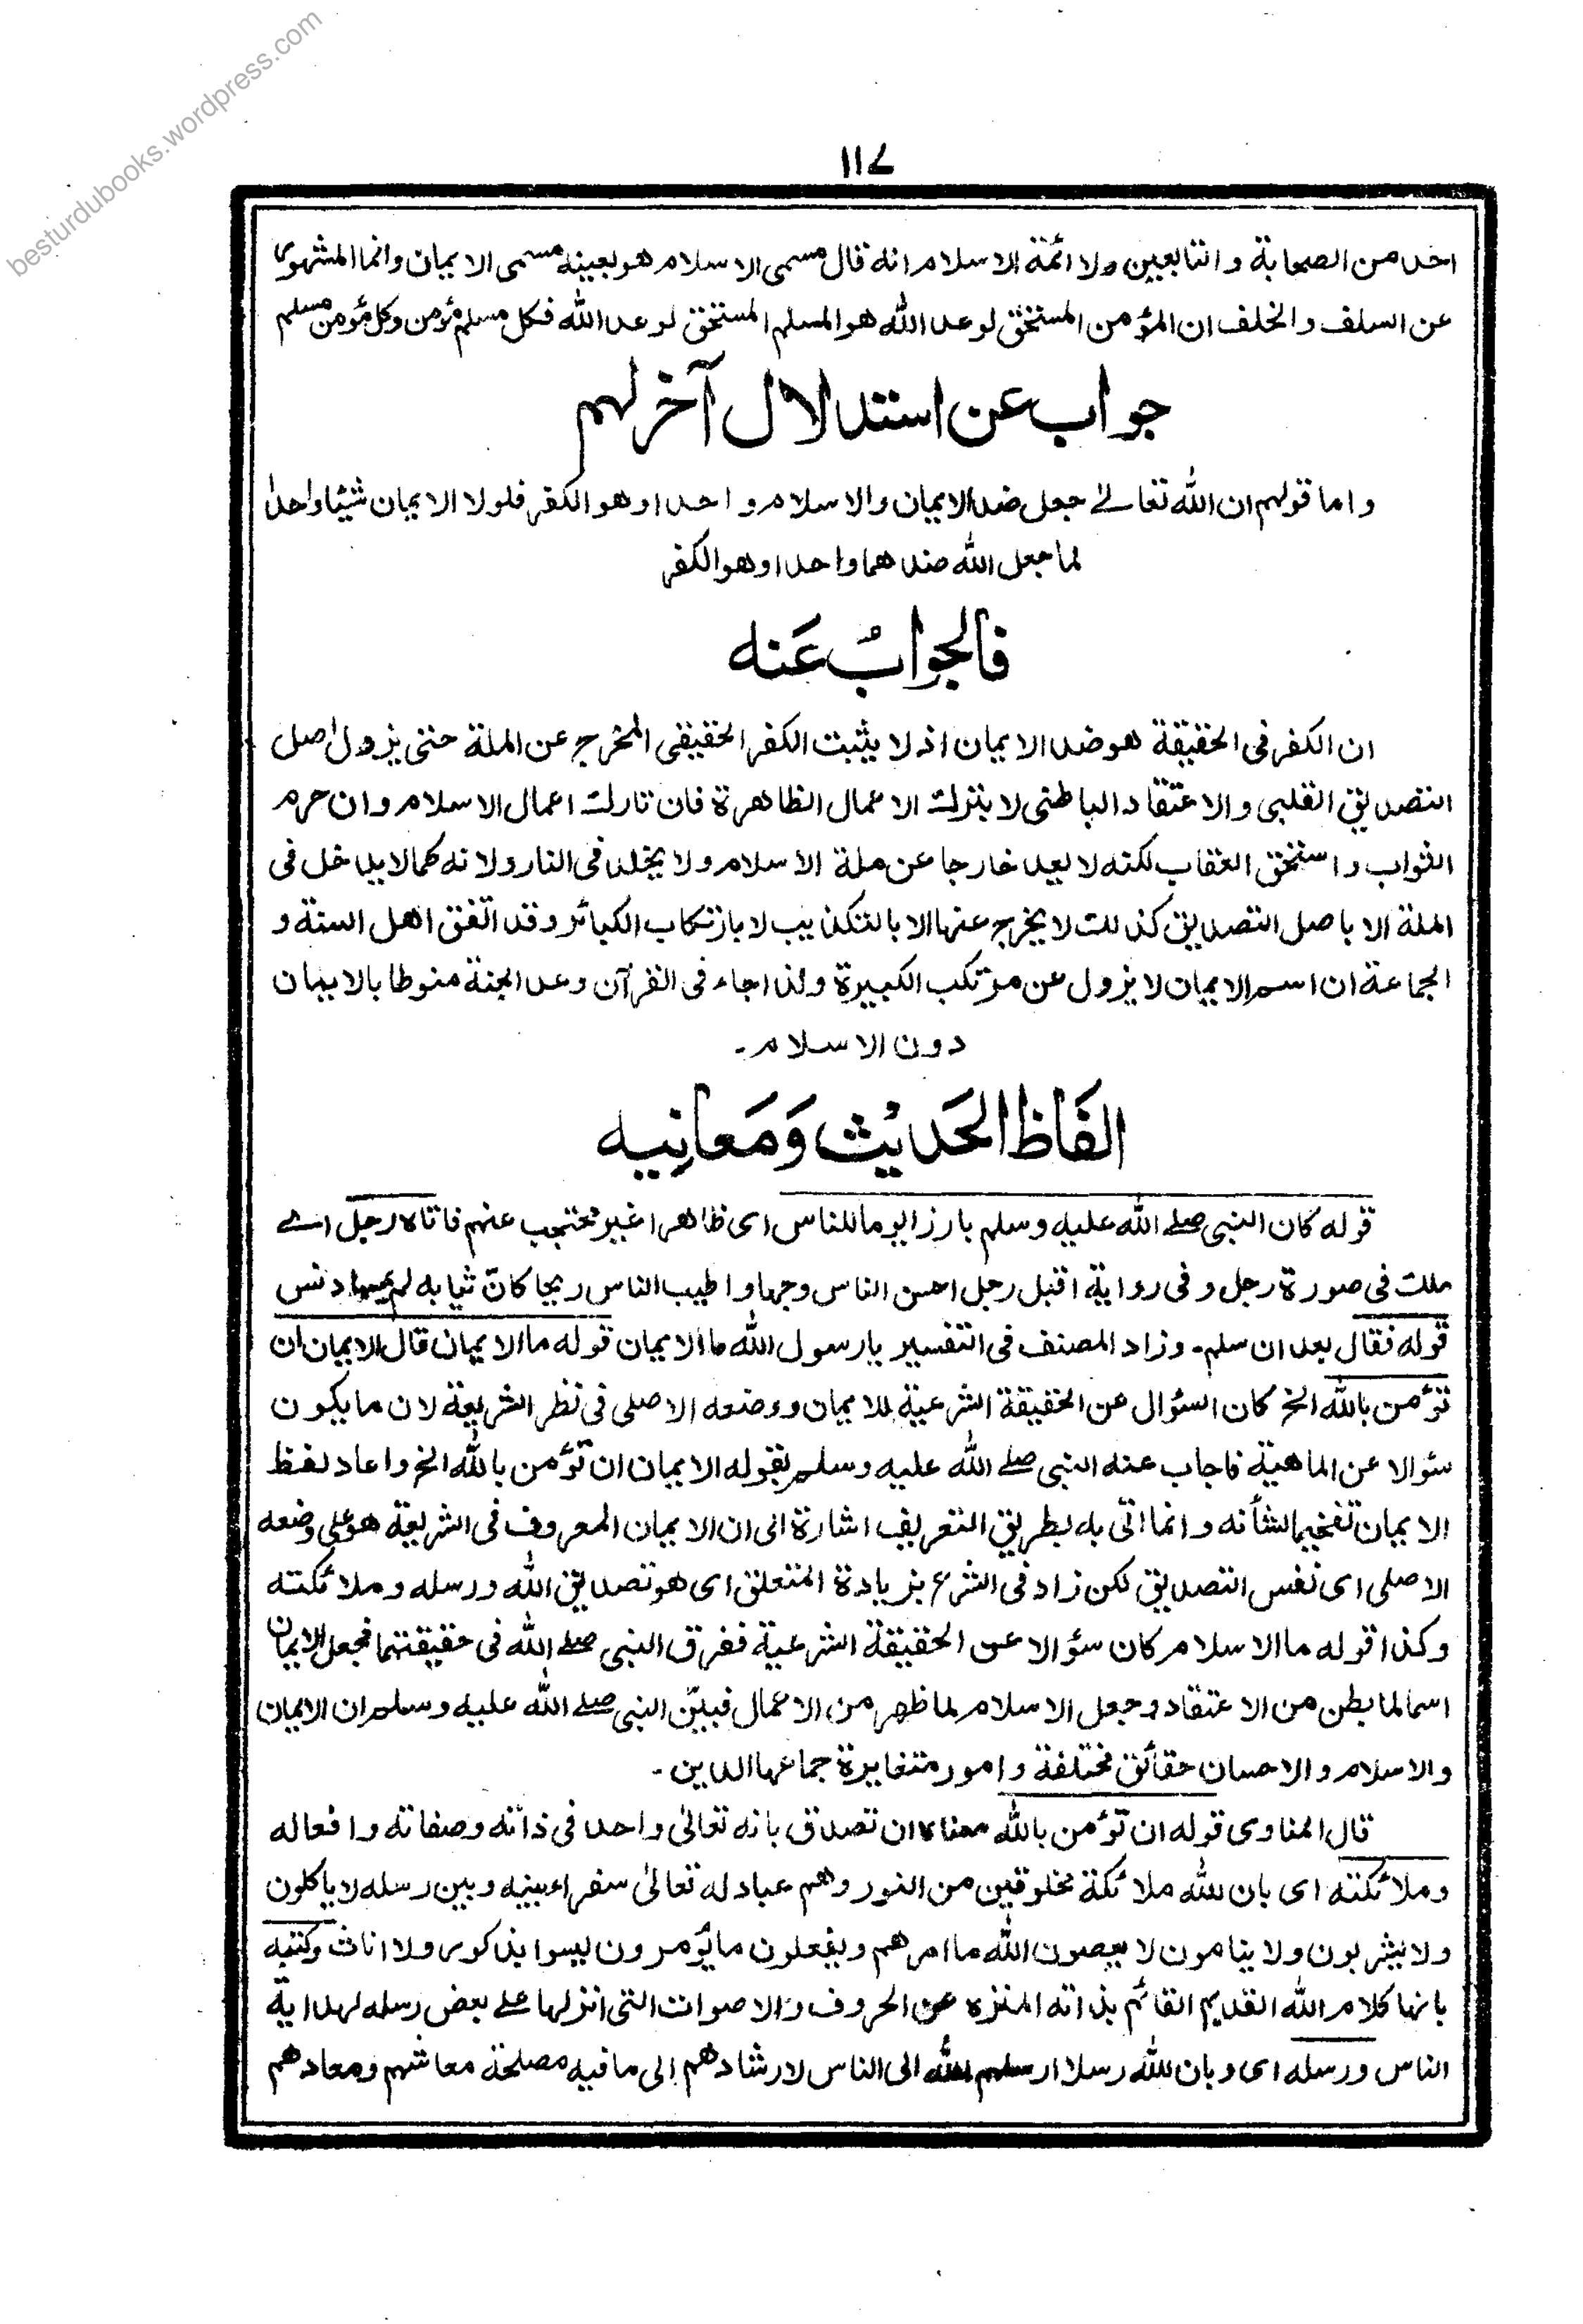 besturdubooks.wordpress.com
۱۱۷
احد من الصحابة والتابعين ولا ائمة الاسلام انه قال مسمى الاسلام هو بعينه مسمى الايمان وانما المشهور
عن السلف والخلف ان المؤمن المستحق لوعد الله هو المسلم المستحق لوعد الله فكل مسلم مؤمن وكل مؤمن مسلم
جواب عن استدلال آخر لهم
واما قولهم ان الله تعالے جعل ضد الايمان والاسلام واحدا وهو الكفر فلولا الايمان شيئا واحدا
لما جعل الله ضدهما واحدا وهو الكفر
فالجوابُ عَنه
ان الكفر فى الحقيقة هو ضد الايمان اذ لا يثبت الكفر الحقيقى المخرج عن الملة حتى يزول اصل
التصديق القلبى والاعتقاد الباطنى لا بترك الاعمال الظاهرة فان تارك اعمال الاسلام وان حرم
الثواب واستحق العقاب لكنه لا يعد خارجا عن ملة الاسلام ولا يخلد فى النار ولانه كما لا يدخل فى
الملة الا باصل التصديق كذلك لا يخرج عنها الا بالتكذيب لا بارتكاب الكبائر وقد اتفق اهل السنة و
الجماعة ان اسم الايمان لا يزول عن مرتكب الكبيرة ولذا جاء فى القرآن وعد الجنة منوطا بالايمان
دون الاسلام۔
الفَاظ الحَديْث وَمَعانِيه
قوله كان النبى صلے الله عليه وسلم بارزا يوما للناس اى ظاهرا غير محتجب عنهم فاتاه رجل اے
ملك فى صورة رجل وفى رواية اقبل رجل احسن الناس وجها واطيب الناس ريحا كانّ ثيابه لم يمسها دنس
قوله فقال بعد ان سلم۔ وزاد المصنف فى التفسير يا رسول الله ما الايمان قوله ما الايمان قال الايمان ان
تؤمن بالله الخ كان السؤال عن الحقيقة الشرعية للايمان ووضعه الاصلى فى نظر الشريعة لان ما يكون
سؤالا عن الماهية فاجاب عنه النبى صلے الله عليه وسلم بقوله الايمان ان تؤمن بالله الخ واعاد لفظ
الايمان تفخيما لشأنه وانما اتى به بطريق التعريف اشارة الى ان الايمان المعروف فى الشريعة هو على وضعه
الاصلى اى نفس التصديق لكن زاد فى الشرع بزيادة المتعلق اى هو تصديق الله ورسله وملائكته
وكذا قوله ما الاسلام كان سؤالا عن الحقيقة الشرعية ففرق النبى صلے الله فى حقيقتهما فجعل الايمان
اسما لما بطن من الاعتقاد وجعل الاسلام لما ظهر من الاعمال فبيّن النبى صلے الله عليه وسلم ان الايمان
والاسلام والاحسان حقائق مختلفة وامور متغايرة جماعها الدين۔
قال المناوى قوله ان تؤمن بالله معناه ان تصدق بانه تعالىٰ واحد فى ذاته وصفاته وافعاله
وملائكته اى بان لله ملائكة مخلوقين من النور وهم عباد له تعالىٰ سفراء بينه وبين رسله لا ياكلون
ولا يشربون ولا ينامون لا يعصون الله ما امرهم ويفعلون ما يؤمرون ليسوا بذكور ولا اناث وكتبه
بانها كلام الله القديم القائم بذاته المنزه عن الحروف والاصوات التى انزلها علے بعض رسله لهداية
الناس ورسله اى وبان لله رسلا ارسلهم الله الى الناس لارشادهم الى ما فيه مصلحة معاشهم ومعادهم